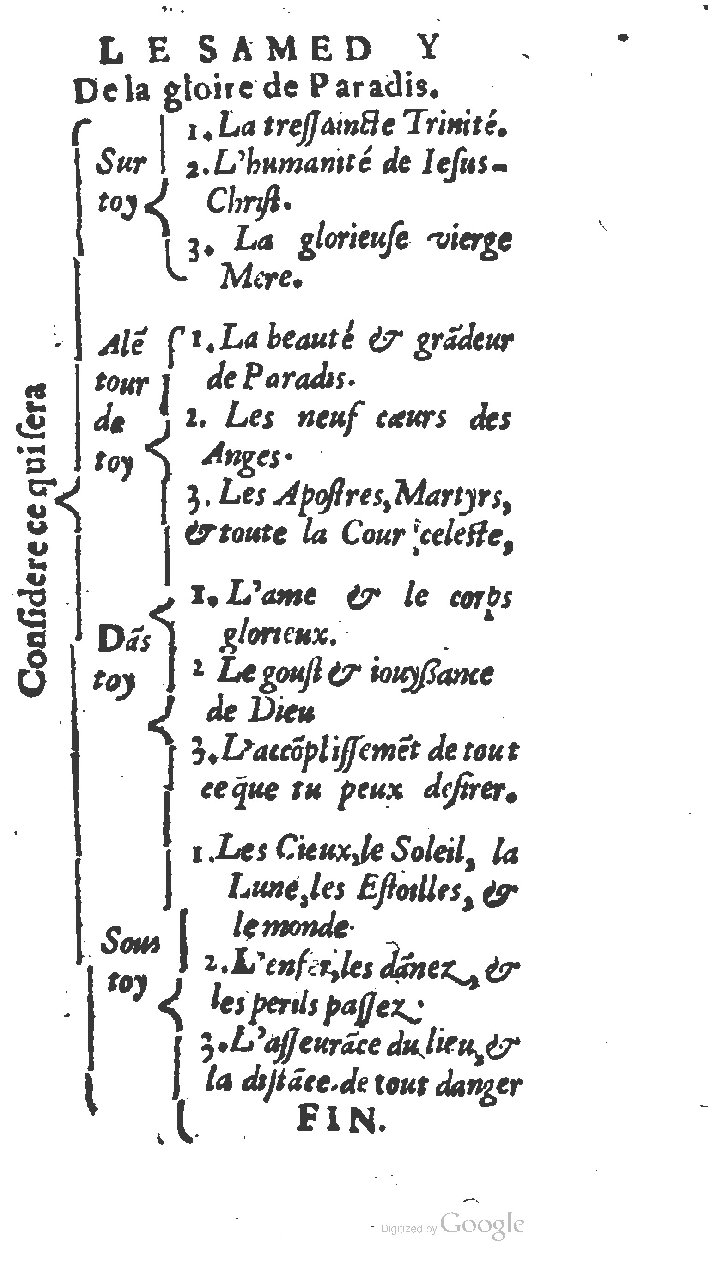 LE SAMEDY
De la gloire de Paradis.
Considere ce qui sera
Sur
toy
1. La tressaincte Trinité.
2. L'humanité de Iesus-
Christ.
3. La glorieuse vierge
Mere.
Alẽ
tour
de
toy
1. La beauté & grãdeur
de Paradis.
2. Les neuf cœurs des
Anges.
3. Les Apostres, Martyrs,
& toute la Cour celeste,
Dãs
toy
1. L'ame & le corps
glorieux.
2 Le goust & iouyssance
de Dieu
3. L'accõplissemẽt de tout
ce q̃ue tu peux desirer.
Sous
toy
1. Les Cieux, le Soleil, la
Lune, les Estoilles, &
le monde.
2. L'enfer, les dãnez, &
les perils passez:
3. L'asseurãce du lieu, &
la distãce de tout danger
FIN.
Digitized by Google